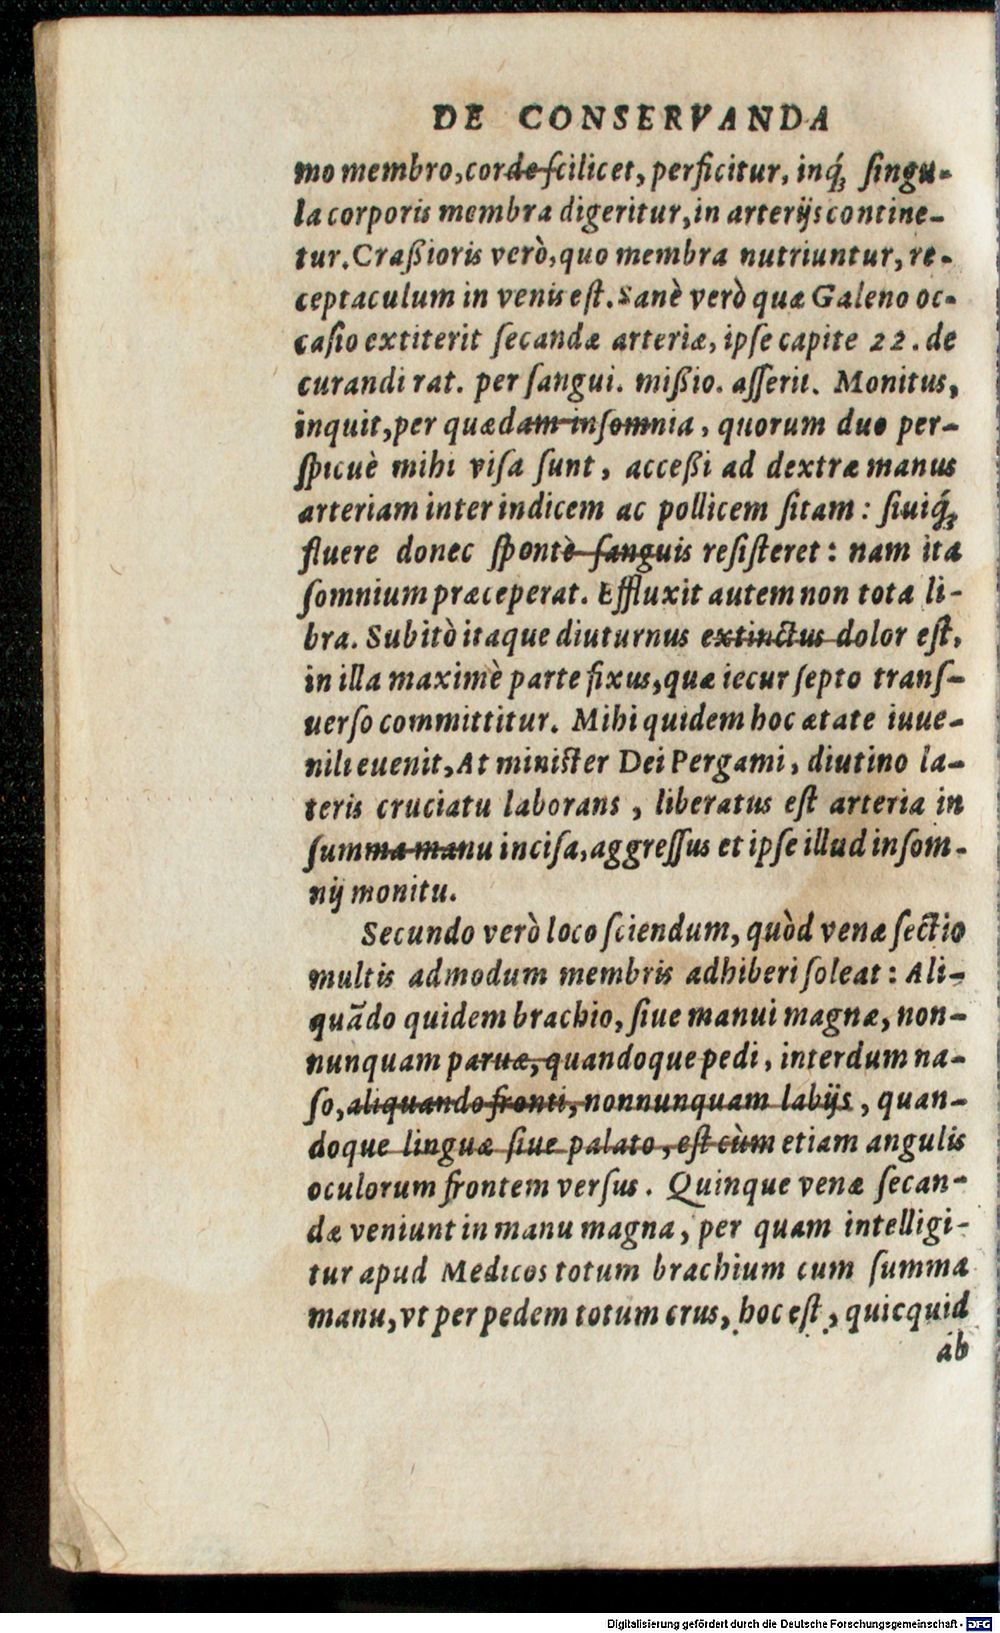 DE CONSERVANDA
mo membro, corde scilicet, perficitur, inq́; singu-
la corporis membra digeritur, in arterijs contine-
tur. Craßioris verò, quo membra nutriuntur, re-
ceptaculum in venis est. Sanè verò quæ Galeno oc-
casio extiterit secandæ arteriæ, ipse capite 22. de
curandi rat. per sangui. mißio. asserit. Monitus,
inquit, per quædam insomnia, quorum duo per-
spicuè mihi visa sunt, acceßi ad dextræ manus
arteriam inter indicem ac pollicem sitam: siuiq́;
fluere donec spontè sanguis resisteret: nam ita
somnium præceperat. Effluxit autem non tota li-
bra. Subitò itaque diuturnus extinctus dolor est,
in illa maximè parte fixus, quæ iecur septo trans-
uerso committitur. Mihi quidem hoc ætate iuue-
nili euenit, At minister Dei Pergami, diutino la-
teris cruciatu laborans, liberatus est arteria in
summa manu incisa, aggressus et ipse illud insom-
nij monitu.
Secundo verò loco sciendum, quòd venæ sectio
multis admodum membris adhiberi soleat: Ali-
quādo quidem brachio, siue manui magnæ, non-
nunquam paruæ, quandoque pedi, interdum na-
so, aliquando fronti, nonnunquam labijs, quan-
doque linguæ siue palato, est cùm etiam angulis
oculorum frontem versus. Quinque venæ secan-
dæ veniunt in manu magna, per quam intelligi-
tur apud Medicos totum brachium cum summa
manu, vt per pedem totum crus, hoc est, quicquid
ab
Digitalisierung gefördert durch die Deutsche Forschungsgemeinschaft - DFG